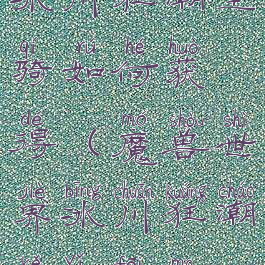 冰川狂潮坐
qí rú hé huò
骑如何获
de mó shòu shì
得(魔兽世
jiè bīng chuān kuáng cháo
界冰川狂潮